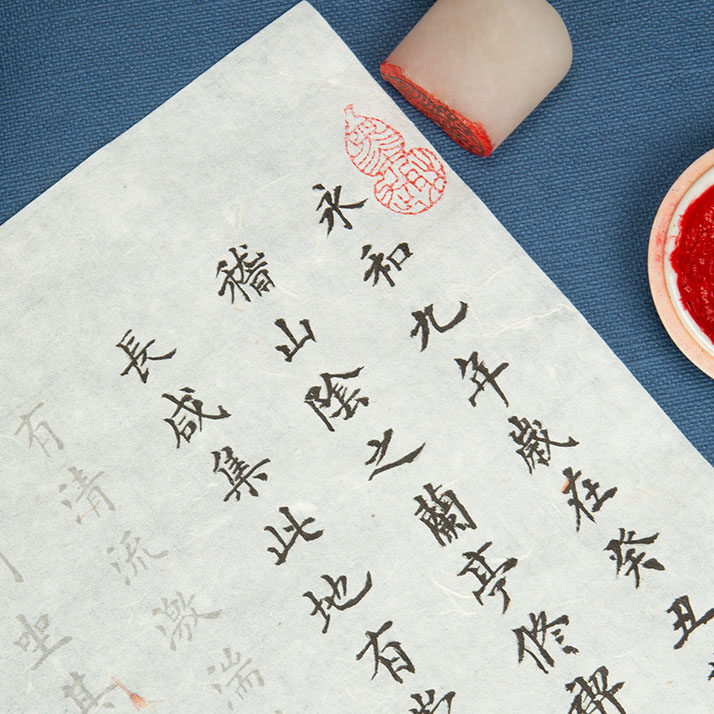 永和九年歲在癸丑
稽山陰之蘭亭修禊
長咸集此地有
有清流激湍
坐其